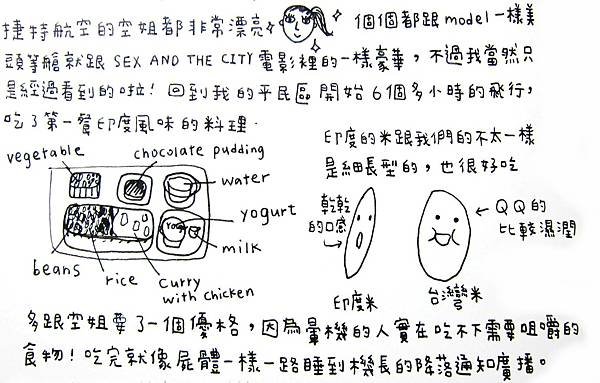 捷特航空的空姐都非常漂亮 個個都跟model一樣美
頭等艙就跟 SEX AND THE CITY 電影裡的一樣豪華，不過我當然只
是經過看到的啦！回到我的平民區 開始6個多小時的飛行，
吃了第一餐印度風味的料理．
印度的米跟我們的不太一樣
是細長型的，也很好吃
vegetable
chocolate pudding
water
yogurt
milk
beans
rice
curry
with chicken
Yogurt
乾乾
的口感
QQ的
比較濕潤
印度米
台灣米
多跟空姐要了一個優格，因為暈機的人實在吃不下需要咀嚼的
食物！吃完就像屍體一樣一路睡到機長的降落通知廣播。